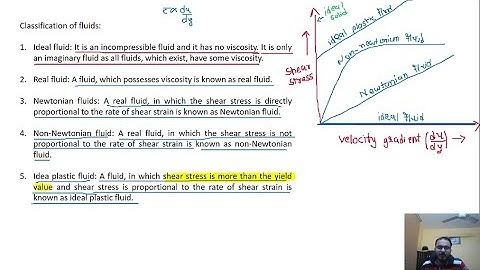 τ ∝ du/dy
Classification of fluids:
1. Ideal fluid: It is an incompressible fluid and it has no viscosity. It is only
an imaginary fluid as all fluids, which exist, have some viscosity.
2. Real fluid: A fluid, which possesses viscosity is known as real fluid.
3. Newtonian fluids: A real fluid, in which the shear stress is directly
proportional to the rate of shear strain is known as Newtonian fluid.
4. Non-Newtonian fluid: A real fluid, in which the shear stress is not
proportional to the rate of shear strain is known as non-Newtonian
fluid.
5. Idea plastic fluid: A fluid, in which shear stress is more than the yield
value and shear stress is proportional to the rate of shear strain is
known as ideal plastic fluid.
ideal
solid
ideal plastic fluid
Non-newtonium fluid
Newtonian fluid
ideal fluid
shear
stress
velocity gradient (du/dy) →